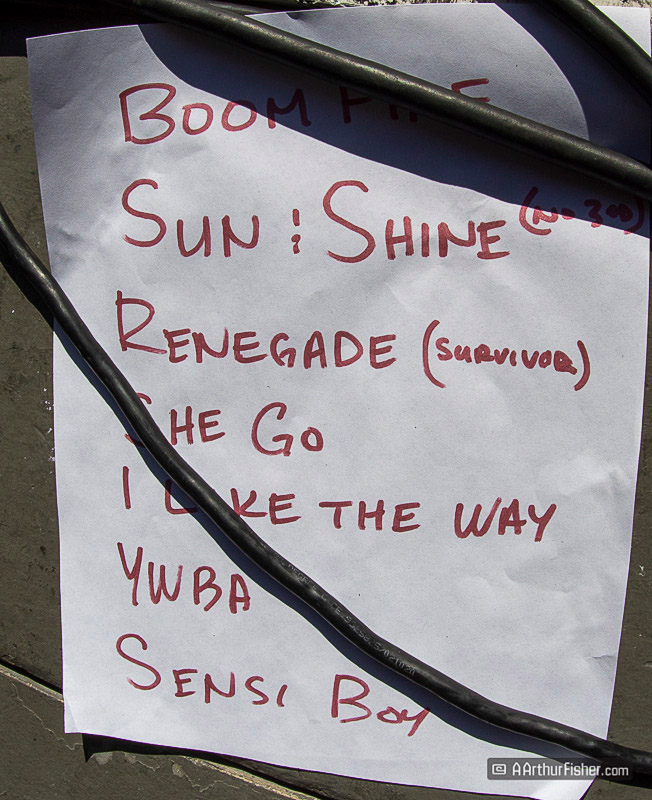 BOOM
SUN : SHINE
RENEGADE (SURVIVOR)
SHE GO
I LIKE THE WAY
YWBA
SENSI BOY
© AArthurFisher.com